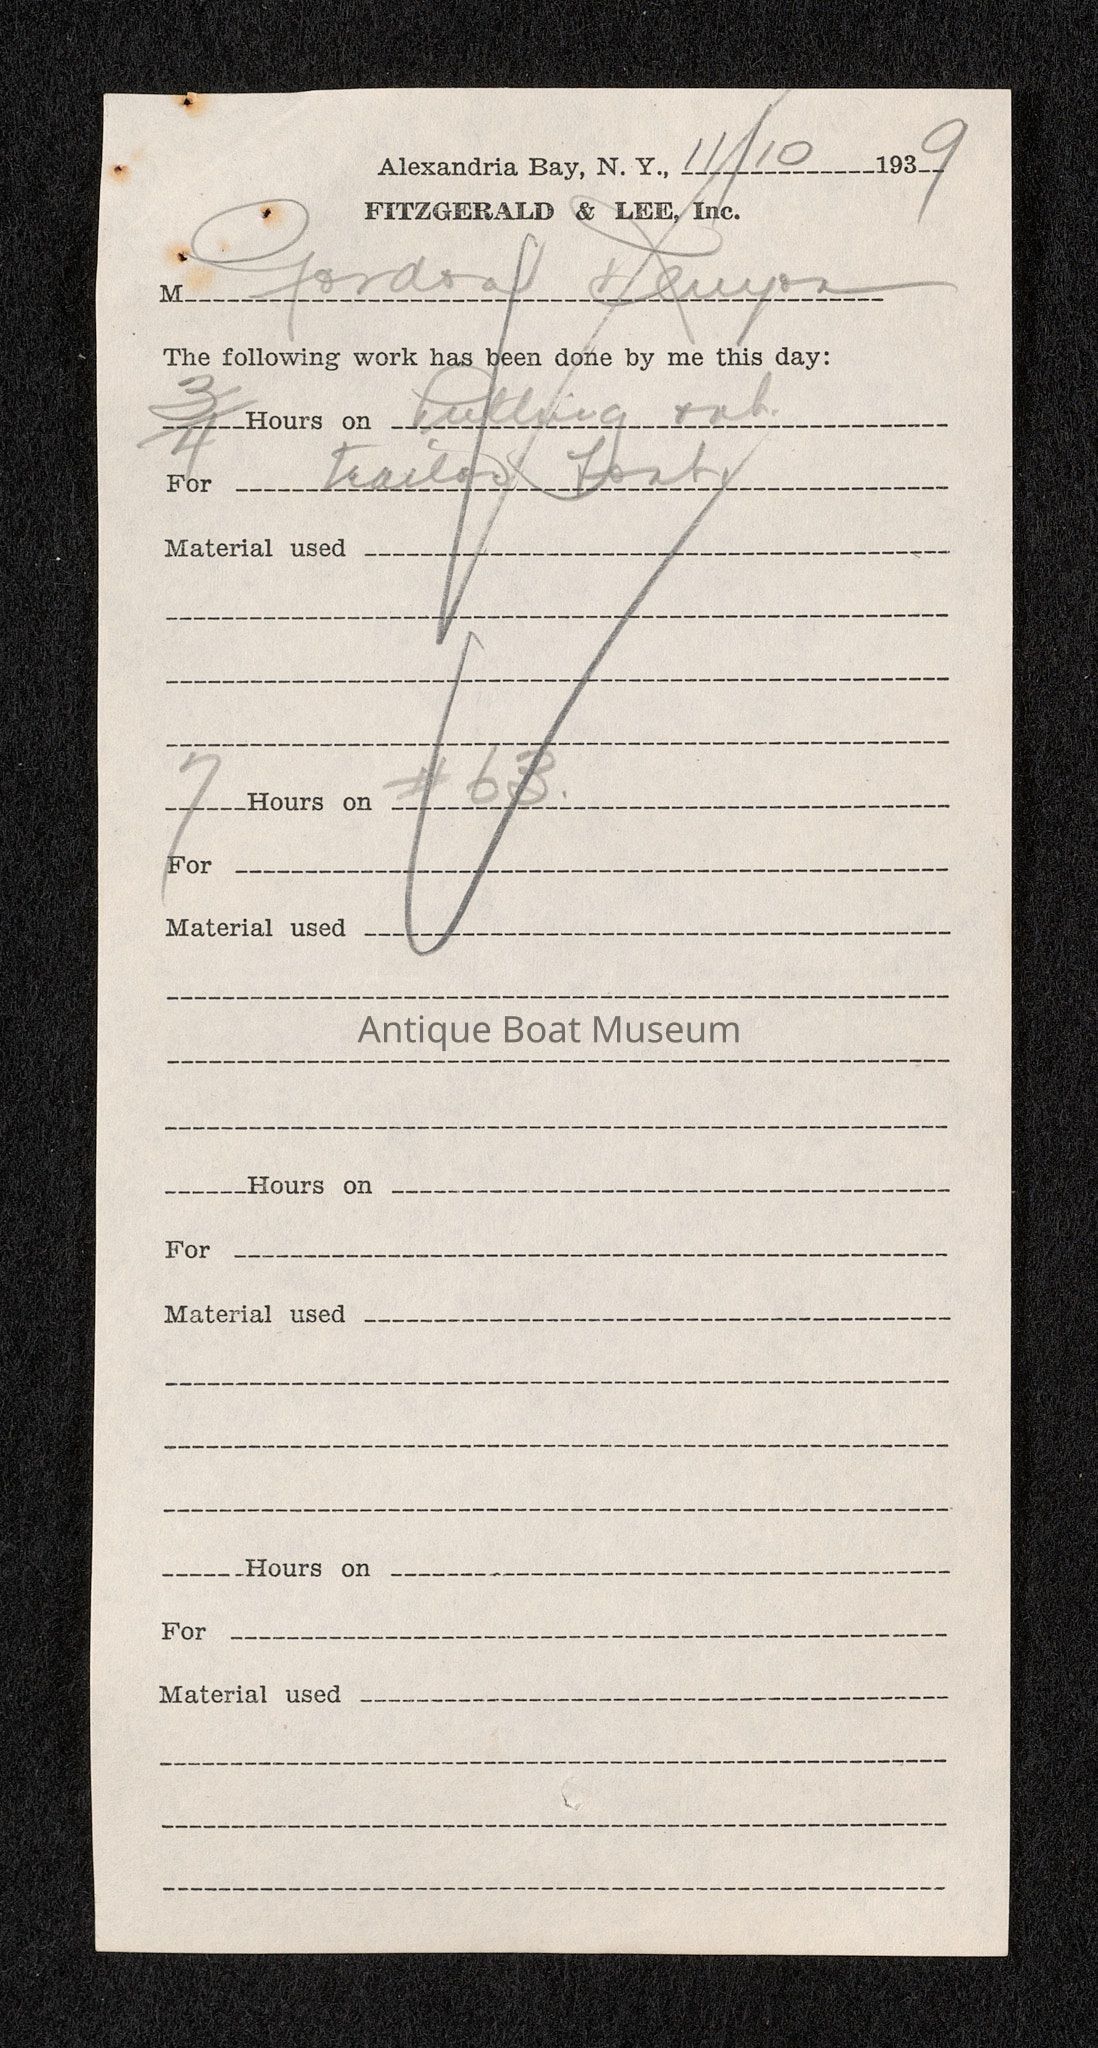 Alexandria Bay, N. Y., 11/10 1939
FITZGERALD & LEE, Inc.
M Gordon Kenyon
The following work has been done by me this day:
3/4 Hours on Pulling out
For trailor boat.
Material used
7 Hours on #63.
For
Material used
Antique Boat Museum
Hours on
For
Material used
Hours on
For
Material used